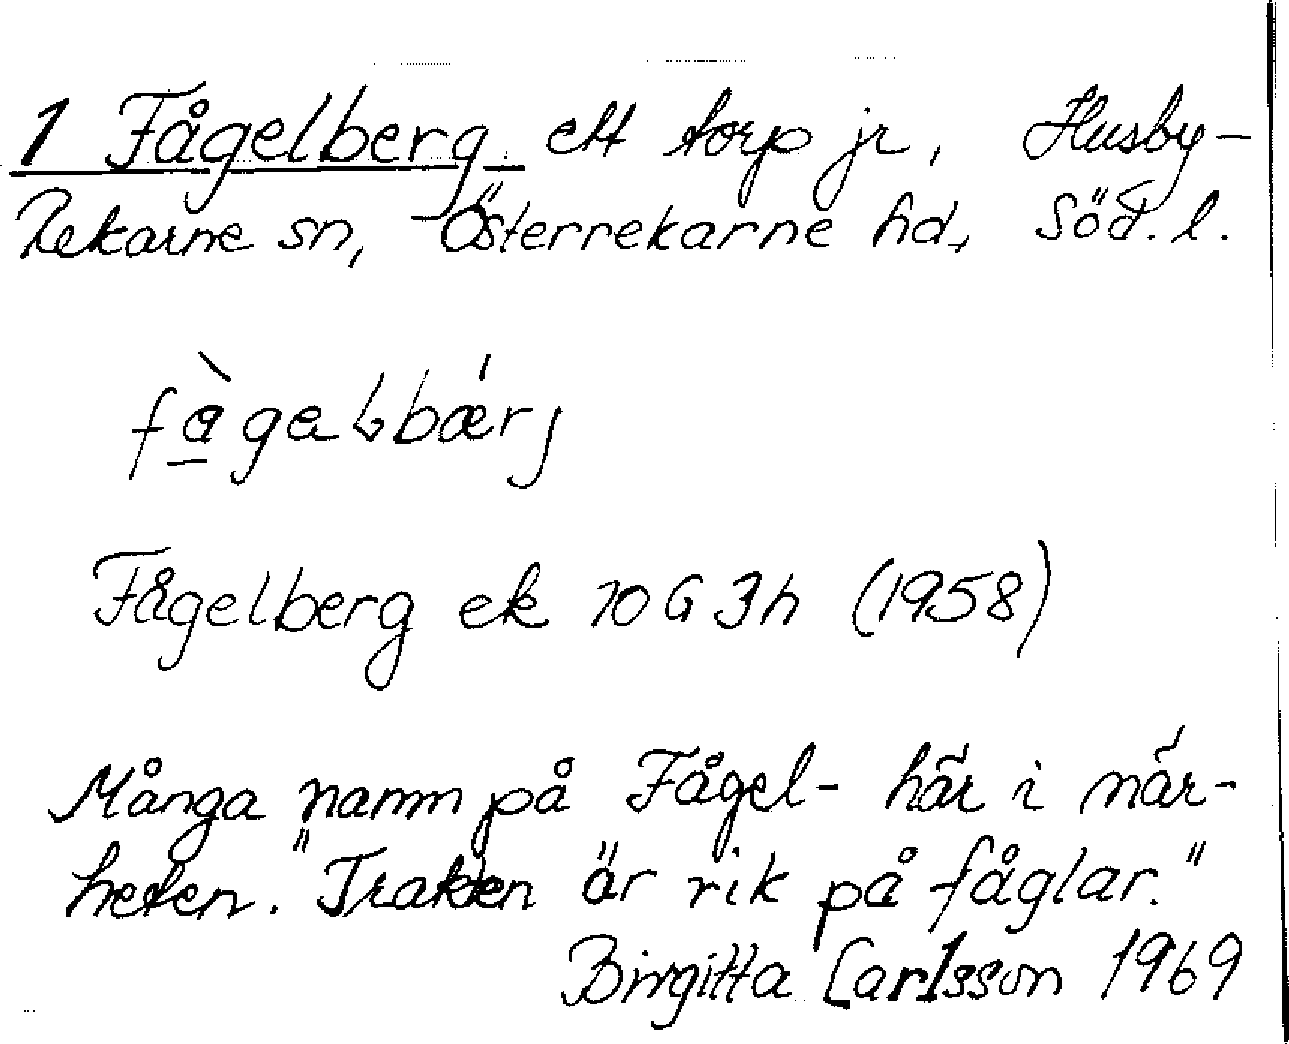 1 Fågelberg ett torp jr, Husby-
Rekarne sn, Österrekarne hd, Söd. l.
Fågelberg ek 10G 3h (1958)
Många namn på Fågel- här i när-
heten. "Trakten är rik på fåglar."
Birgitta Carlsson 1969